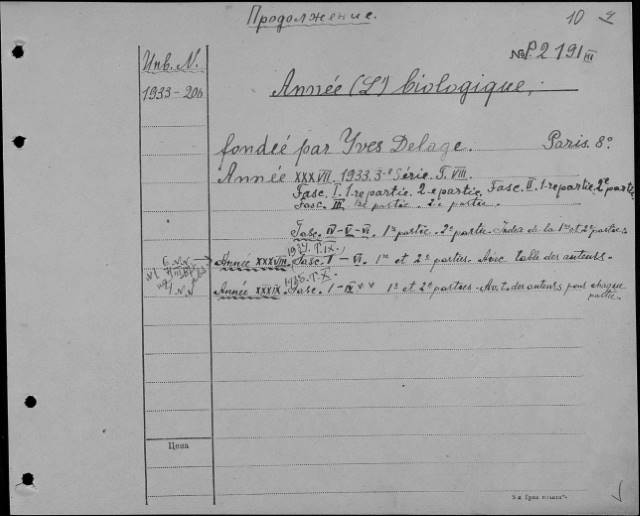 Продолжение.
10
№ P2 191 III
Инв. N.
1933-206
Année (L') biologique,
fondée par Yves Delage. Paris. 8°
Année XXXVII. 1933. 3-e Série. T. VIII.
Fasc. I. 1-re partie. 2-e partie. Fasc. II. 1-re partie. 2e partie
Fasc. III 1re partie. 2e partie.
Fasc. IV-V-VI. 1re partie. 2e partie. Index de la 1re et 2e parties.
1934. T. IX.
Année XXXVIII. Fasc. I-VI. 1re et 2e parties. Avec table des auteurs.
1935. T. X.
Année XXXIX. Fasc. I-IV 1e et 2e parties. Av. t. des auteurs pour chaque partie.
Цена